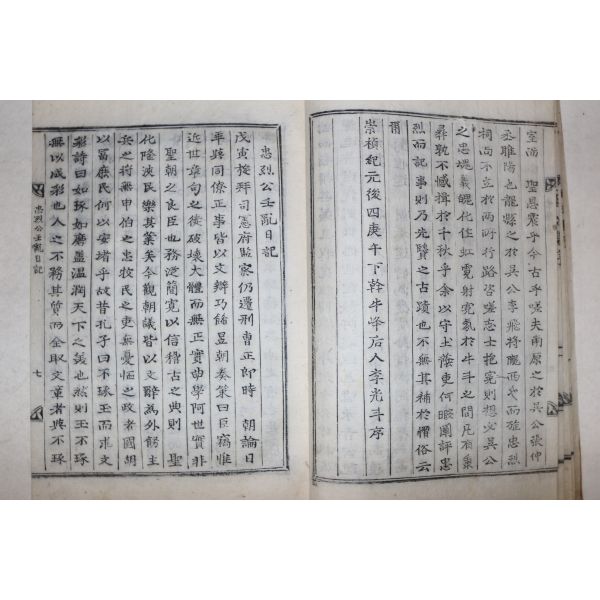 室而 聖恩震乎今古乎嗟夫南原之於吳公張仲
丞睢陽也龍縣之於吳公李飛將隴西也而雖忠烈
祠尚不立於兩所行路咨嗟志士抱寃則想必吳公
之忠塊義魄化仕虹霓射寃氣於牛斗之間凡有秉
彛孰不憾損於千秋乎余以守土蔭吏何暇圖評忠
烈而記事則乃先贊之古蹟也不無其補於懦俗云
爾
崇禎紀元後四庚午下幹牛峰后人李光斗序
忠烈公壬亂日記
戊寅授拜司憲府監察仍遷刑曹正郞時 朝論日
乖跨同僚正事皆以文辯巧餙昱朝奏策曰臣竊惟
近世章句之徒破壞大體而無正實曲學阿世實非
聖朝之良臣也務泛簡寬以信稽古之典則 聖
化隆波民樂其業矣今觀朝議皆以文辭為外飭主
兵之將無申伯之忠牧民之吏無憂恤之政者國胡
以富庶民何以安堵乎故昔孔子曰不琢玉而求文
彩詩曰如琢如磨盖溫潤天下之美也然則玉不琢
無以成彩也人之不務其質而金取文章者與不琢
忠烈公壬亂日記
七